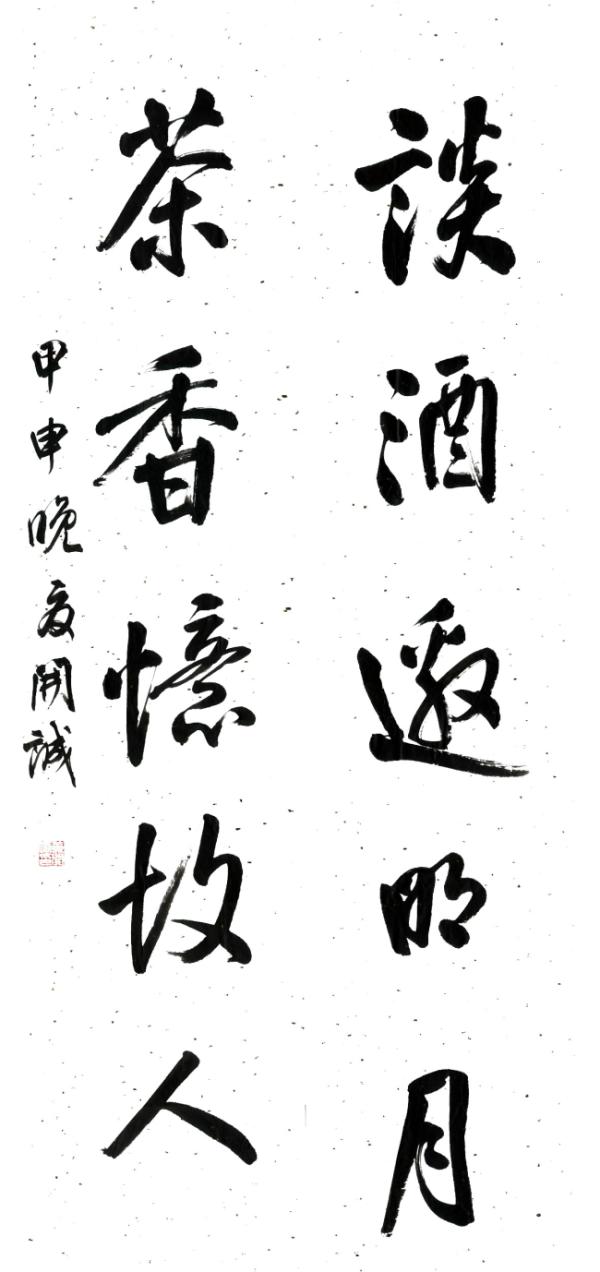 談酒邀明月
茶香憶故人
甲申晚夏開誠